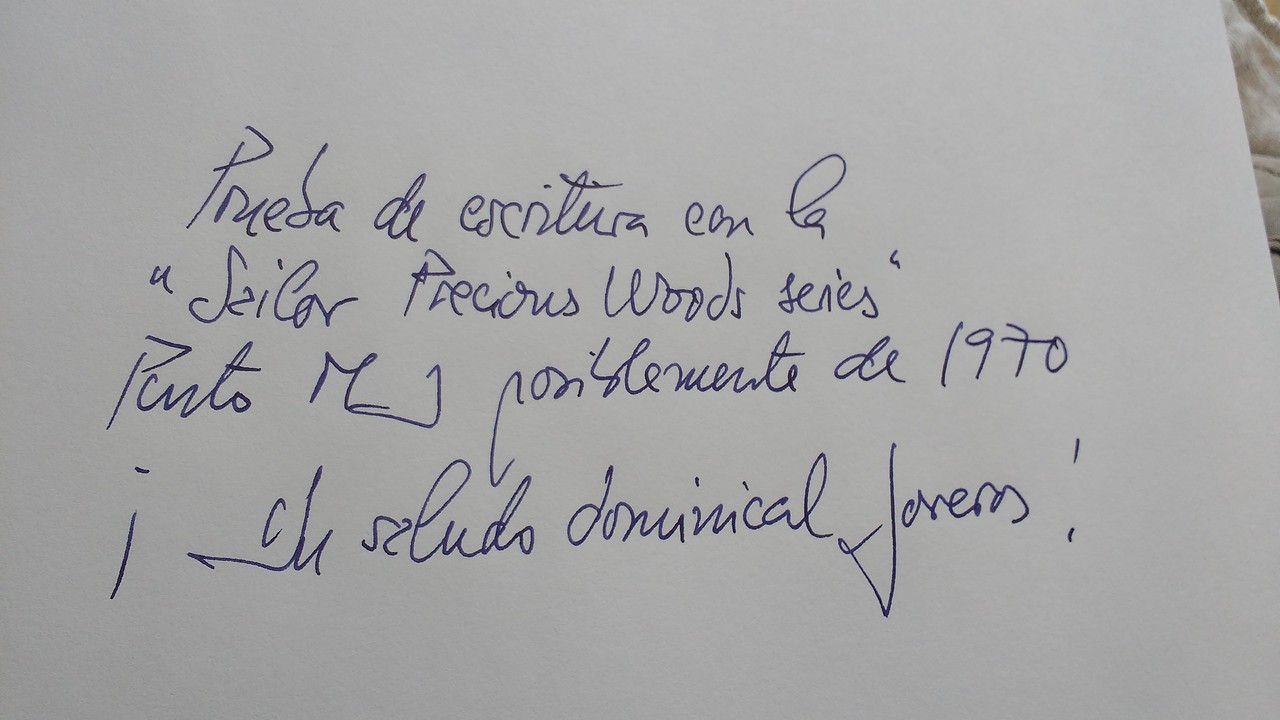 Prueba de escritura con la
"Sailor Precious Woods series"
Punto M, posiblemente de 1970
¡Un saludo dominical, foreros!